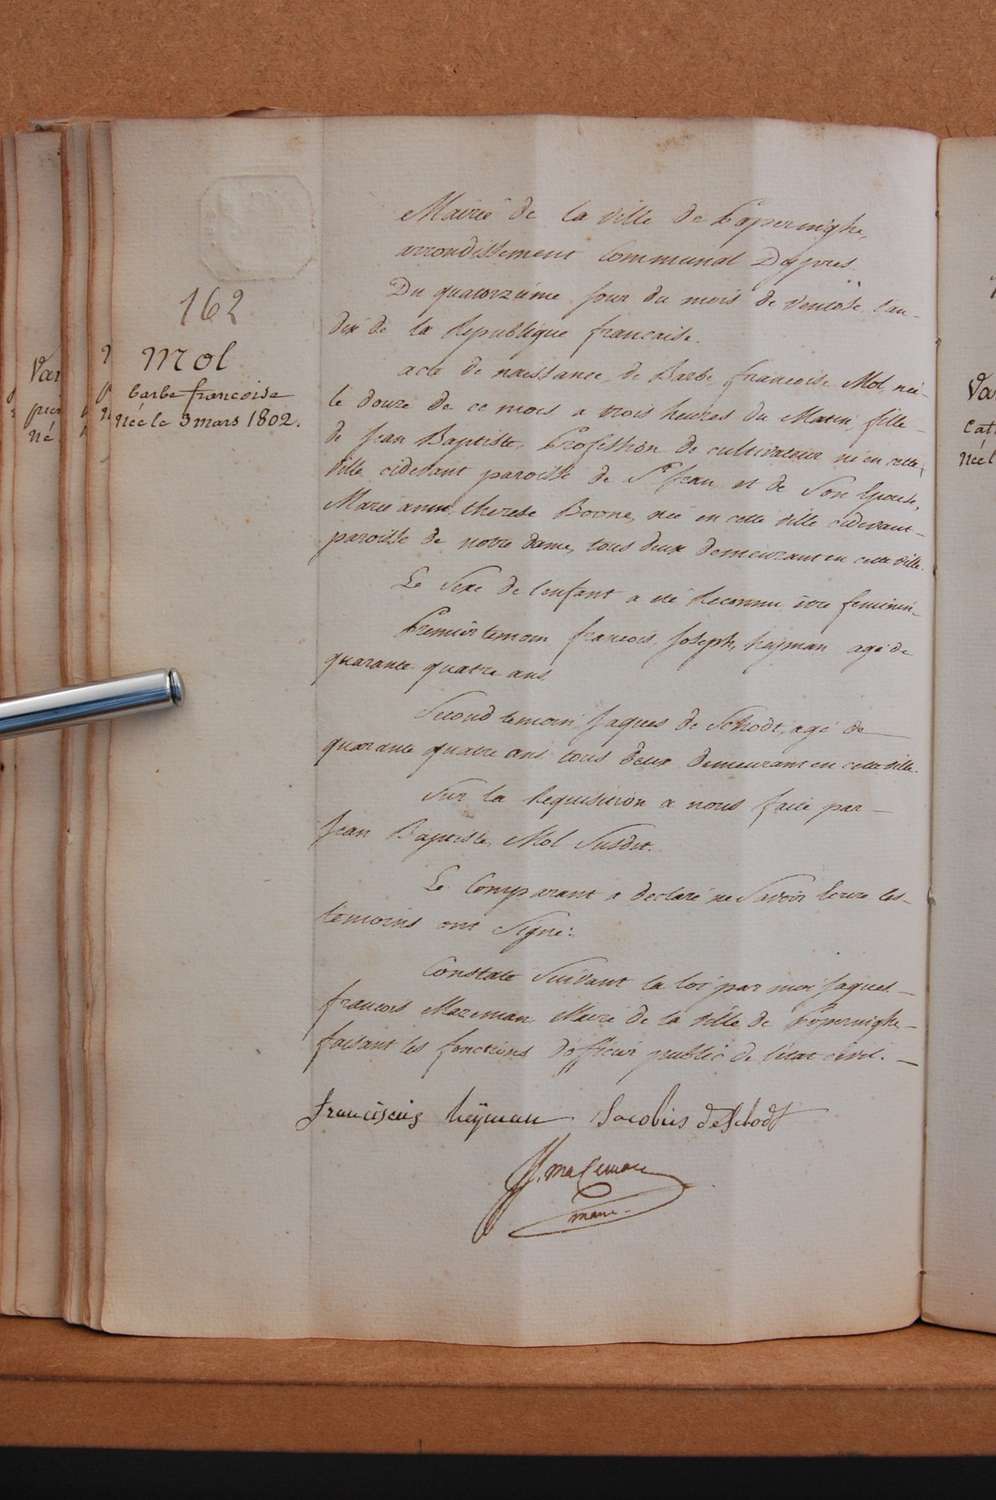 162
Mol
barbe francoise
Née le 3 mars 1802.
Mairie de la ville de Poperinghe,
arrondissement Communal D'ypres
Du quatorzieme jour du mois de ventôse l'an
dix de la Republique francaise.
acte de naissance de Barbe francoise Mol née
le douze de ce mois a trois heures du Matin fille
de Jean Baptiste, Profession de cultivateur né en cette
ville cidevant paroisse de St Jean et de Son Epouse,
Marie anne therese Boone, née en cette ville cidevant
paroisse de notre dame, tous deux demeurant en cette ville.
Le Sexe de l'enfant a été Reconnu être feminin
Premier temoin francois Joseph, heyman agé de
quarante quatre ans
Second temoin Jaques de Schodt, agé de
quarante quatre ans tous deux demeurant en cette ville.
Sur la Requisition a nous faite par
Jean Baptiste, Mol Susdit.
Le Comparant a declaré ne Savoir Ecrire les
temoins ont Signé:
Constaté Suivant la loi par moi Jaques
francois Mazeman Maire de la ville de Poperinghe
faisant les fonctions d'officier public de l'état civil.
Franciscus heÿman Jacobus deSchodt
maire.
Var
Né
Va
Cat
Née l